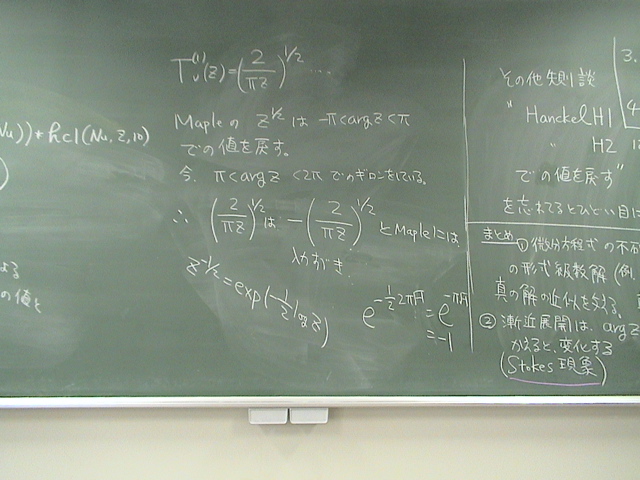 Nu))*hcl(Nu, z, 10)
)
よる
の値と
T_ν^(1)(z) = (2/πz)^1/2 ....
Mapleの z^1/2 は -π<arg z<π
での値を戻す。
今、π<arg z <2π でのギロンをしている。
∴ (2/πz)^1/2 は -(2/πz)^1/2 とMapleには
入力すべき.
z^-1/2 = exp(-1/2 log z)
e^-1/2 2πi = e^-πi
= -1
3.
4
その他
" HanckelH1
" H2
での値を戻す"
を忘れてるとひどい目に
まとめ
① 微分方程式の不
の形式級数解 (例
真の解の近似を与える.
② 漸近展開は、arg z
かえると、変化する
(Stokes 現象)